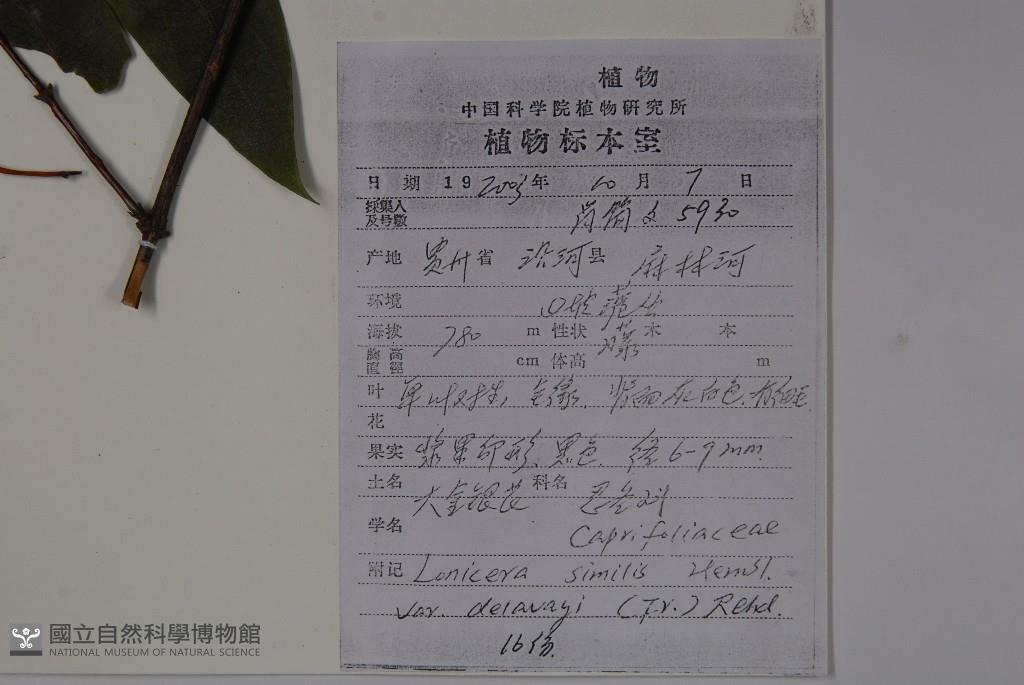 植物
中国科学院植物研究所
植物标本室
日期 19 2003年 10月 7日
採集人及号數 简文 5930
产地 贵州省 沿河县 麻林河
环境 山坡灌丛
海拔 780 m 性状 灌木 本
胸高直徑 cm 体高 m
叶 单叶对生, 全缘, 背面灰白色, 有细毛
花
果实 浆果卵形, 黑色 径6-9mm.
土名 大金银花 科名 忍冬科
学名 Caprifoliaceae
附记 Lonicera similis Hemsl.
var. delavayi (Fr.) Rehd.
16份.
國立自然科學博物館
NATIONAL MUSEUM OF NATURAL SCIENCE